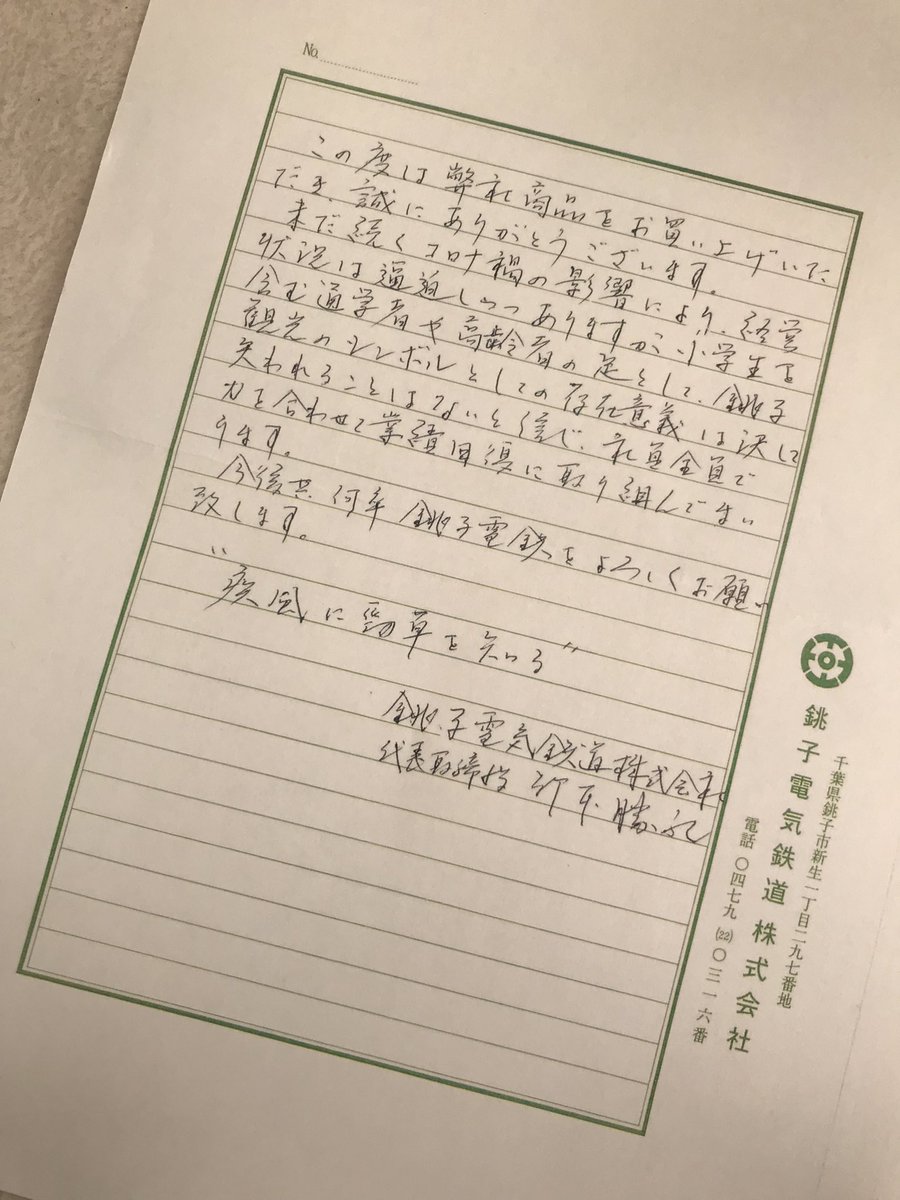 No.
この度は弊社商品をお買い上げいた
だき、誠にありがとうございます。
未だ続くコロナ禍の影響により、経営
状況は逼迫しつつありますが、小学生を
含む通学者や高齢者の足として、銚子
観光のシンボルとしての存在意義は決して
失われることはないと信じ、社員全員で
力を合わせて業績回復に取り組んでまい
ります。
今後共、何卒 銚子電鉄をよろしくお願い
致します。
"疾風に勁草を知る"
銚子電気鉄道株式会社
代表取締役 竹本勝紀
銚子電気鉄道株式会社
千葉県銚子市新生一丁目二九七番地
電話 〇四七九 (22) 〇三一六番